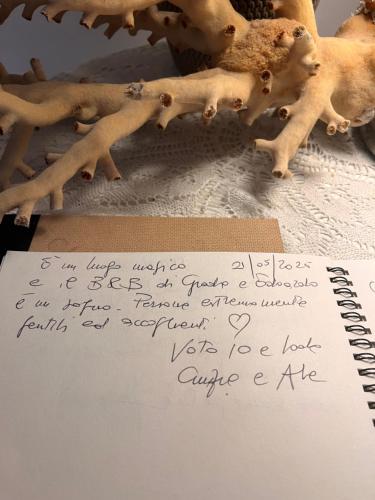 È un luogo magico 21/05/2025
e il B&B di Giada e
è un sogno. Persone estremamente
gentili ed accoglienti ♡
Voto 10 e lode
Cinzia e Ale